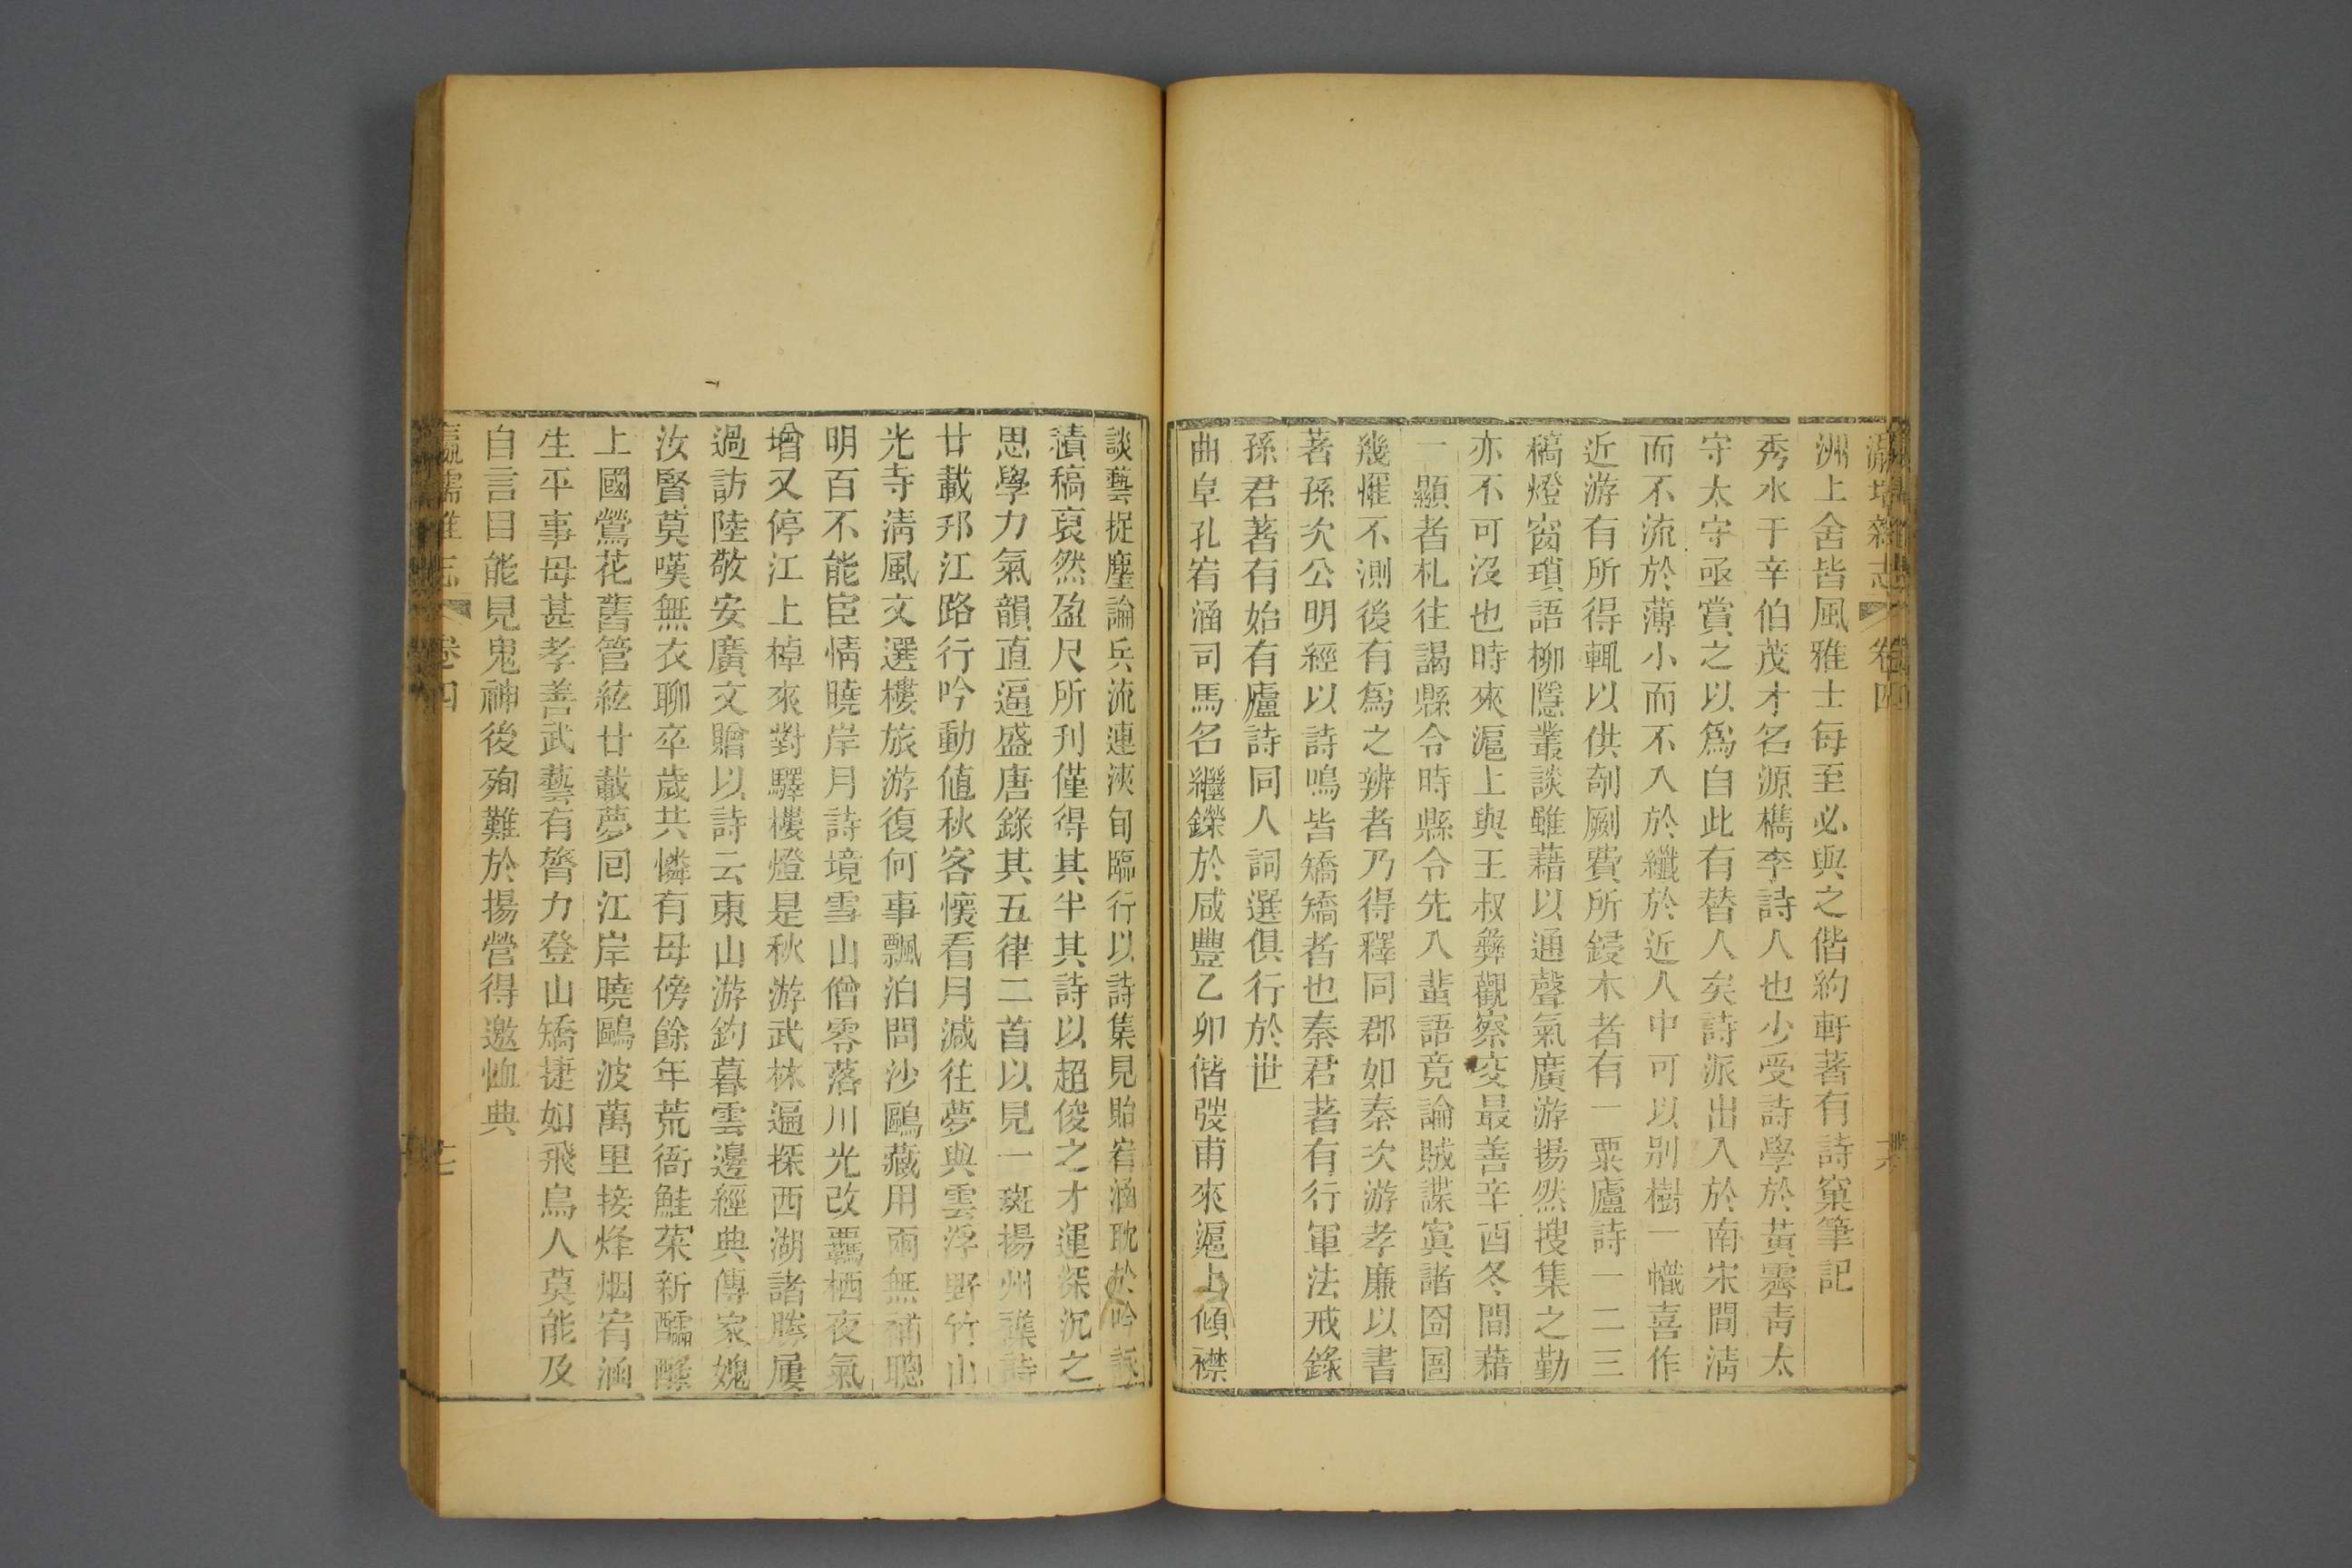 瀛壖雜志 卷四
洲上舍皆風雅士每至必與之偕約軒著有詩窠筆記
秀水于辛伯茂才名源檇李詩人也少受詩學於黃霽青太
守太守亟賞之以爲自此有替人矣詩派出入於南宋間清
而不流於薄小而不入於纖於近人中可以别樹一幟喜作
近游有所得輒以供剞劂費所鋟木者有一粟廬詩一二三
稿燈窗瑣語柳隱叢談雖藉以通聲氣廣游揚然搜集之勤
亦不可沒也時來滬上與王叔彝觀察交最善辛酉冬間藉
一顯者札往謁縣令時縣令先入蜚語竟論賊諜寘諸囹圄
幾罹不測後有爲之辨者乃得釋同郡如秦次游孝廉以書
著孫次公明經以詩鳴皆矯矯者也秦君著有行軍法戒錄
孫君著有始有廬詩同人詞選俱行於世
曲阜孔宥涵司馬名繼鑅於咸豐乙卯偕弢甫來滬上傾襟
談藝捉麈論兵流連浹旬臨行以詩集見貽宥涵耽於吟詠
積稿裒然盈尺所刊僅得其半其詩以超俊之才運深沉之
思學力氣韻直逼盛唐錄其五律二首以見一斑揚州雜詩
廿載邗江路行吟動値秋客懷看月減往夢與雲浮野竹山
光寺淸風文選樓旅游復何事飄泊問沙鷗藏用爾無補聰
明百不能宦情曉岸月詩境雪山僧零落川光改羈栖夜氣
增又停江上棹來對驛樓燈是秋游武林遍探西湖諸勝屢
過訪陸敬安廣文贈以詩云東山游釣暮雲邊經典傳家媿
汝賢莫嘆無衣聊卒歲共憐有母傍餘年荒衙鮭菜新醽醁
上國鶯花舊管絃廿載夢囘江岸曉鷗波萬里接烽烟宥涵
生平事母甚孝善武藝有膂力登山矯捷如飛鳥人莫能及
自言目能見鬼神後殉難於揚營得邀恤典
瀛壖雜志 卷四